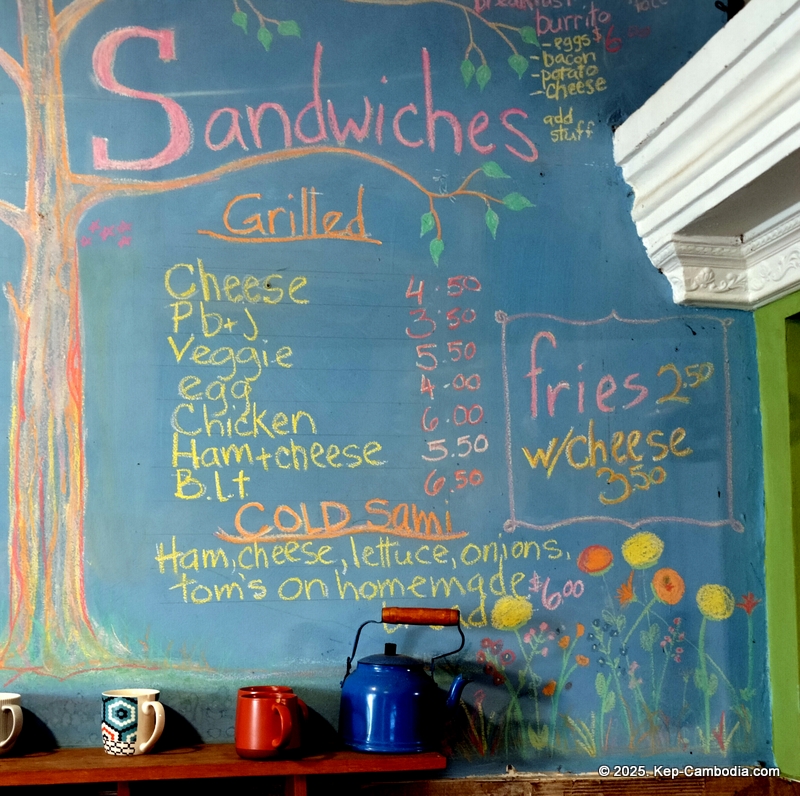 Sandwiches
breakfast
burrito
$6.50
-eggs
-bacon
-potato
-cheese
add
stuff
Grilled
Cheese 4.50
P.b+J 3.50
Veggie 5.50
egg 4.00
Chicken 6.00
Ham+cheese 5.50
B.L.t 6.50
fries 2.50
w/cheese
3.50
COLD Sami
Ham, cheese, lettuce, onions,
tom's on homemade $6.00
© 2025. Kep-Cambodia.com